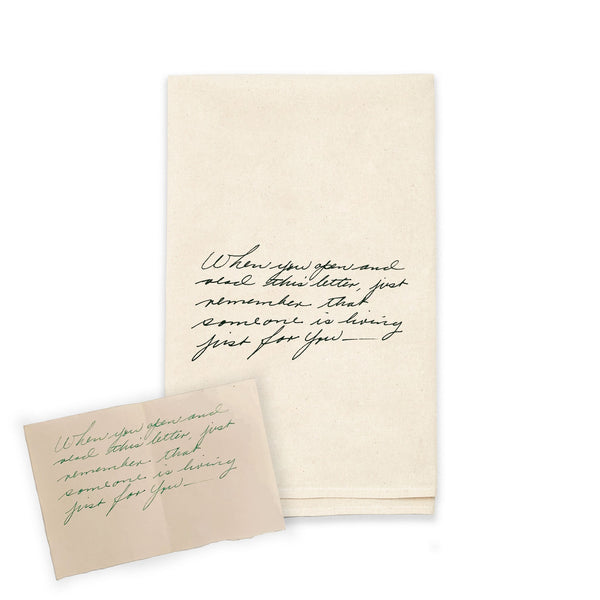 When you open and
read this letter, just
remember that
someone is living
just for you——
When you open and
read this letter, just
remember that
someone is living
just for you——